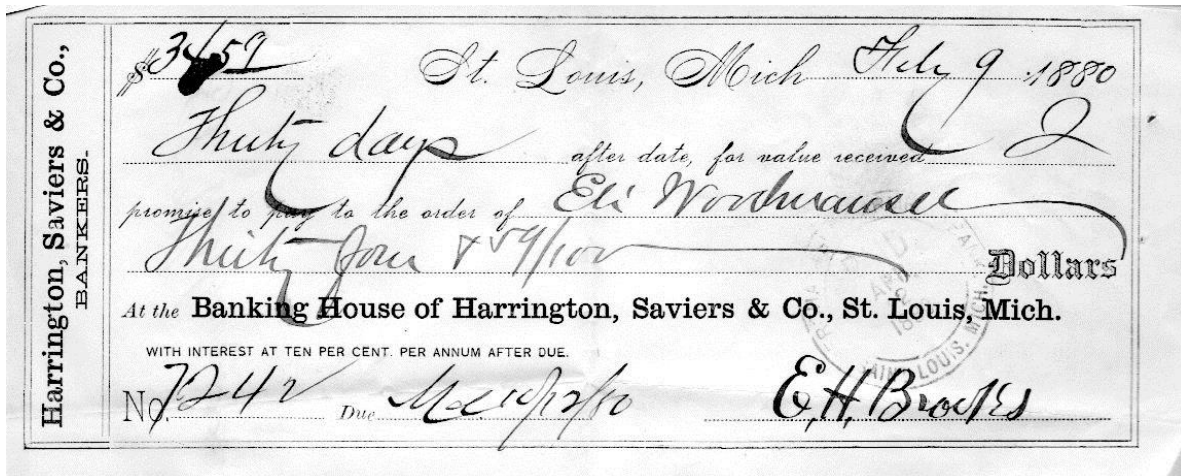 Harrington, Saviers & Co.,
BANKERS.
$34 59 St. Louis, Mich Feby 9 1880
Thirty days after date, for value received I
promise to pay to the order of Eli
Thirty four & 59/100 Dollars
At the Banking House of Harrington, Saviers & Co., St. Louis, Mich.
WITH INTEREST AT TEN PER CENT. PER ANNUM AFTER DUE.
No. 7242 Due 12/80 E. H. Brooks
PAID
APR
SAINT LOUIS, MICH.